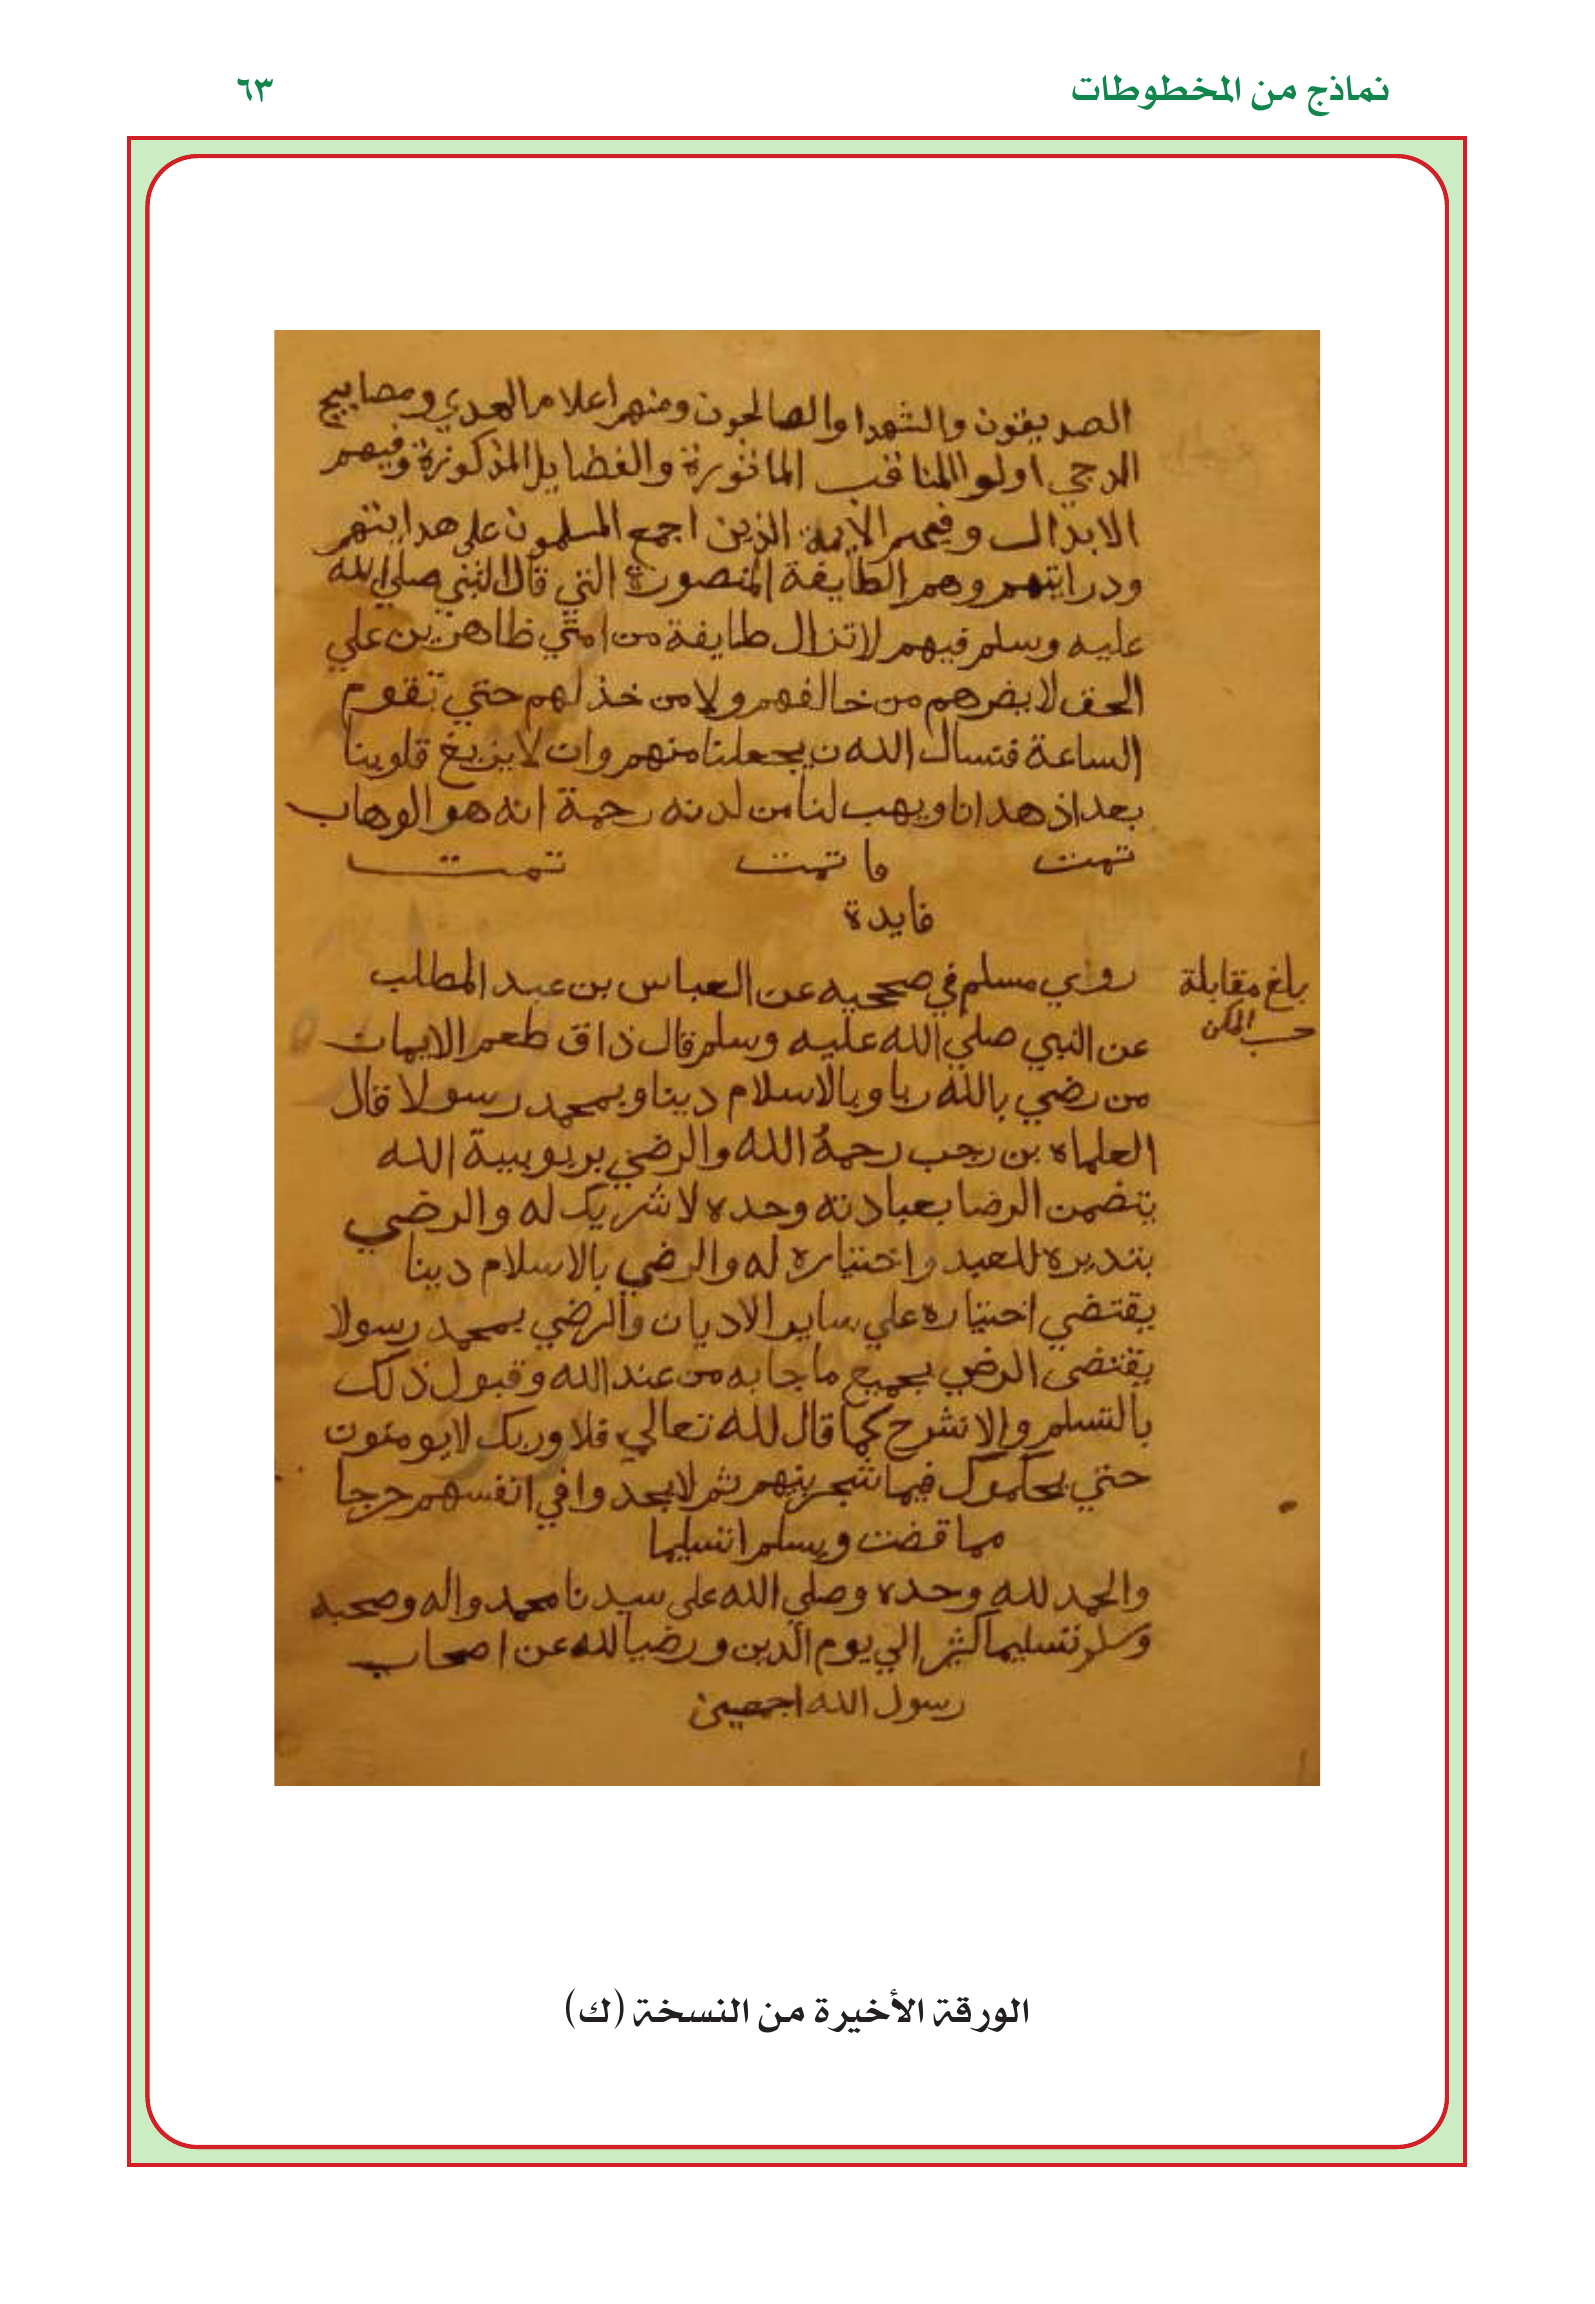 نماذج من المخطوطات ٦٣
الصديقون والشهدا والصالحون ومنهم اعلام الهدي ومصابيح
الدجي اولوا المناقب الماثورة والفضايل المذكورة وفيهم
الابدال وفيهم الايمة الذين اجمع المسلمون على هدايتهم
ودرايتهم وهم الطايفة المنصورة التي قال النبي صلي الله
عليه وسلم فيهم لا تزال طايفة من امتي ظاهرين علي
الحق لا يضرهم من خالفهم ولا من خذلهم حتي تقوم
الساعة فنسال الله ن يجعلنا منهم وان لا يزيغ قلوبنا
بعد اذ هدانا ويهب لنا من لدنه رحمة انه هو الوهاب
تمت ما تمت تمت
فايدة
رواي مسلم في صححيه عن العباس بن عبد المطلب
عن النبي صلي الله عليه وسلم قال ذاق طعم الايمان
من رضي بالله ربا وبالاسلام دينا وبمحمد رسولا قال
العلماه بن رجب رحمهُ الله والرضي بربوبيية الله
يتضمن الرضا بعبادته وحده لا شريك له والرضي
بتدبره للعبد واختياره له والرضي بالاسلام دينا
يقتضي اختياره علي ساير الاديان والرضي بمحمد رسولا
يقتضى الرضي بجميع ما جا به من عند الله وقبول ذلك
بالتسلم والانشرح كما قال لله تعالي فلا وربك لا يومنون
حتي يحكموك فيما شجر بينهم ثم لا يجدوا في انفسهم حرجا
مما قضت ويسلموا تسليما
والحمد لله وحده وصلي الله على سيدنا محمد واله وصحبه
وسلم تسليما كثير الي يوم الدين ورضيا لله عن اصحاب
رسول الله اجمعين
بلغ مقابلة
حسب المكن
الورقة الأخيرة من النسخة (ك)